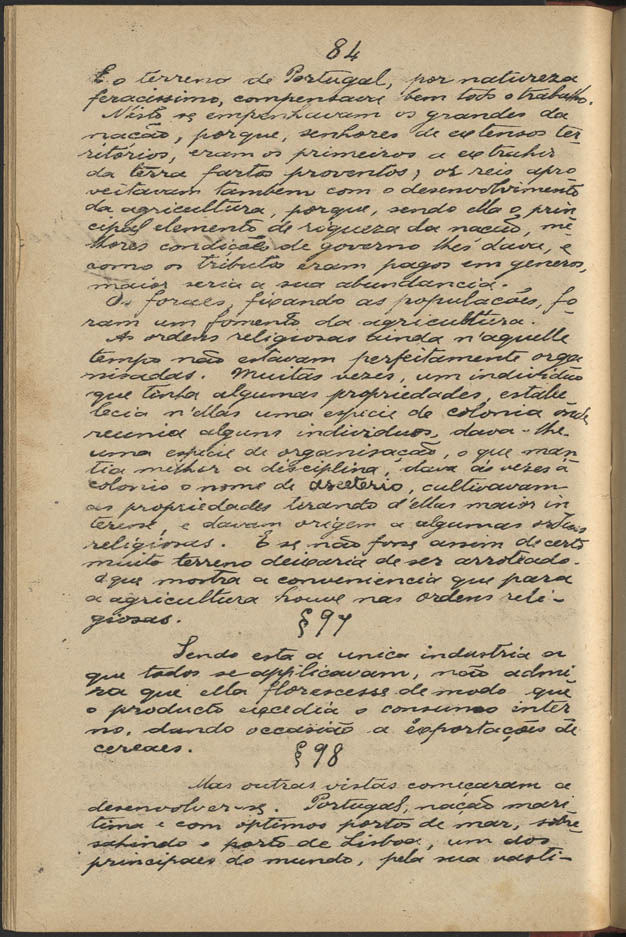 84
E o terreno de Portugal, por natureza
feracissimo, compensava bem todo o trabalho.
Nisto se empenhavam os grandes da
nação, porque, senhores de extensos ter-
ritórios, eram os primeiros a extrahir
da terra fartos proventos; os reis apro
veitavam tambem com o desenvolvimento
da agricultura, porque, sendo ella o prin-
cipal elemento de riqueza da nação, me-
lhores condições de governo lhes dava, e
como os tributos eram pagos em generos,
maior seria a sua abundancia.
Os foraes, fixando as populações, fo-
ram um fomento da agricultura.
As ordens religiosas ainda n'aquelle
tempo não estavam perfeitamente orga
nisadas. Muitas vezes, um individuo
que tinha algumas propriedades, estabe
lecia n'ellas uma especie de colonia onde
reunia alguns individuos, dava-lhe
uma especie de organisação, o que man
tia melhor a disciplina, dava ás vezes á
colonia o nome de asceterio, cultivavam
as propriedades tirando d'ellas maior in
teresse, e davam origem a algumas ordens
religiosas. E se não fosse assim de certo
muito terreno deixaria de ser arroteado.
o que mostra a conveniencia que para
a agricultura houve nas ordens reli-
giosas.
§ 97
Sendo esta a unica industria a
que todos se applicavam, não admi
ra que ella florescesse de modo que
o producto excedia o consumo inter
no, dando occasião a exportações de
cereaes.
§ 98
Mas outras vistas começaram a
desenvolver-se. Portugal, nação mari
tima e com optimos portos de mar, sobre-
sahindo o porto de Lisboa, um dos
principaes do mundo, pela sua vasti-